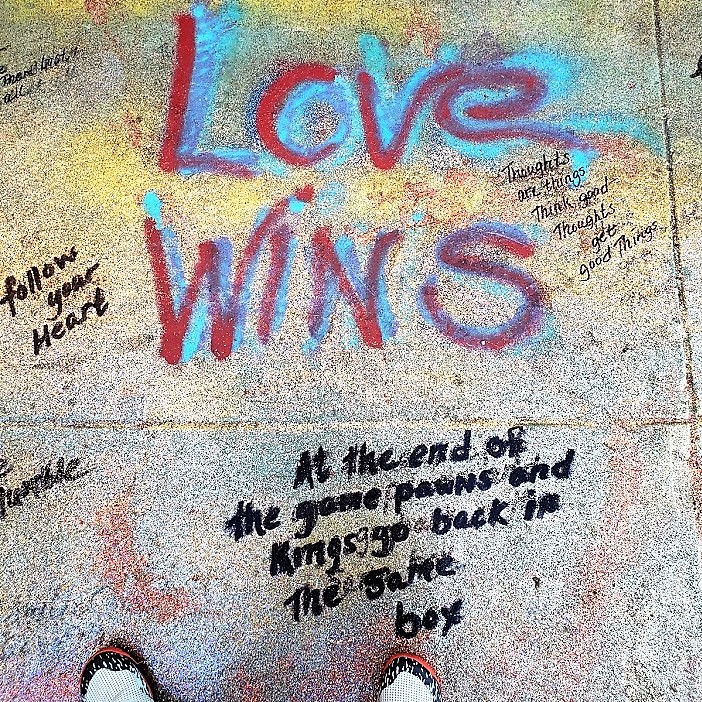 LOVE
WINS
all
Thoughts
are things
Think good
Thoughts
get
good Things
follow
your
Heart
At the end of
the game pawns and
Kings go back in
The same
box